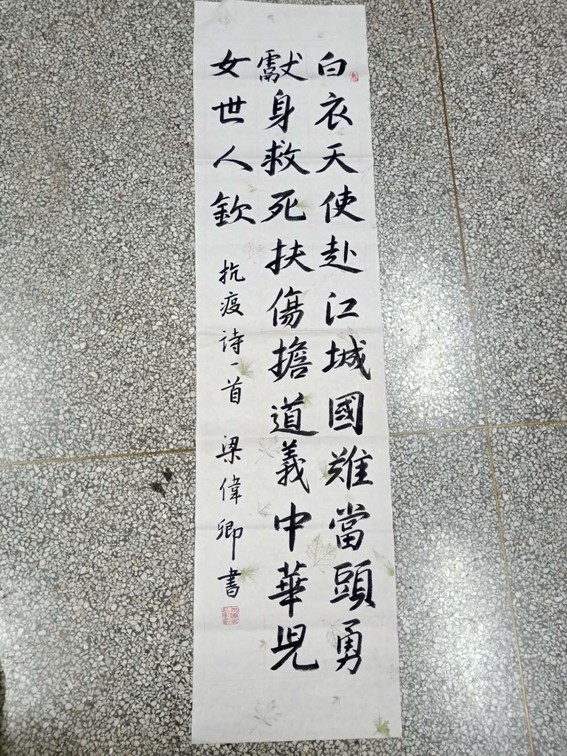 白衣天使赴江城國難當頭勇
獻身救死扶傷擔道義中華児
女世人欽
抗疫诗一首 梁偉卿書